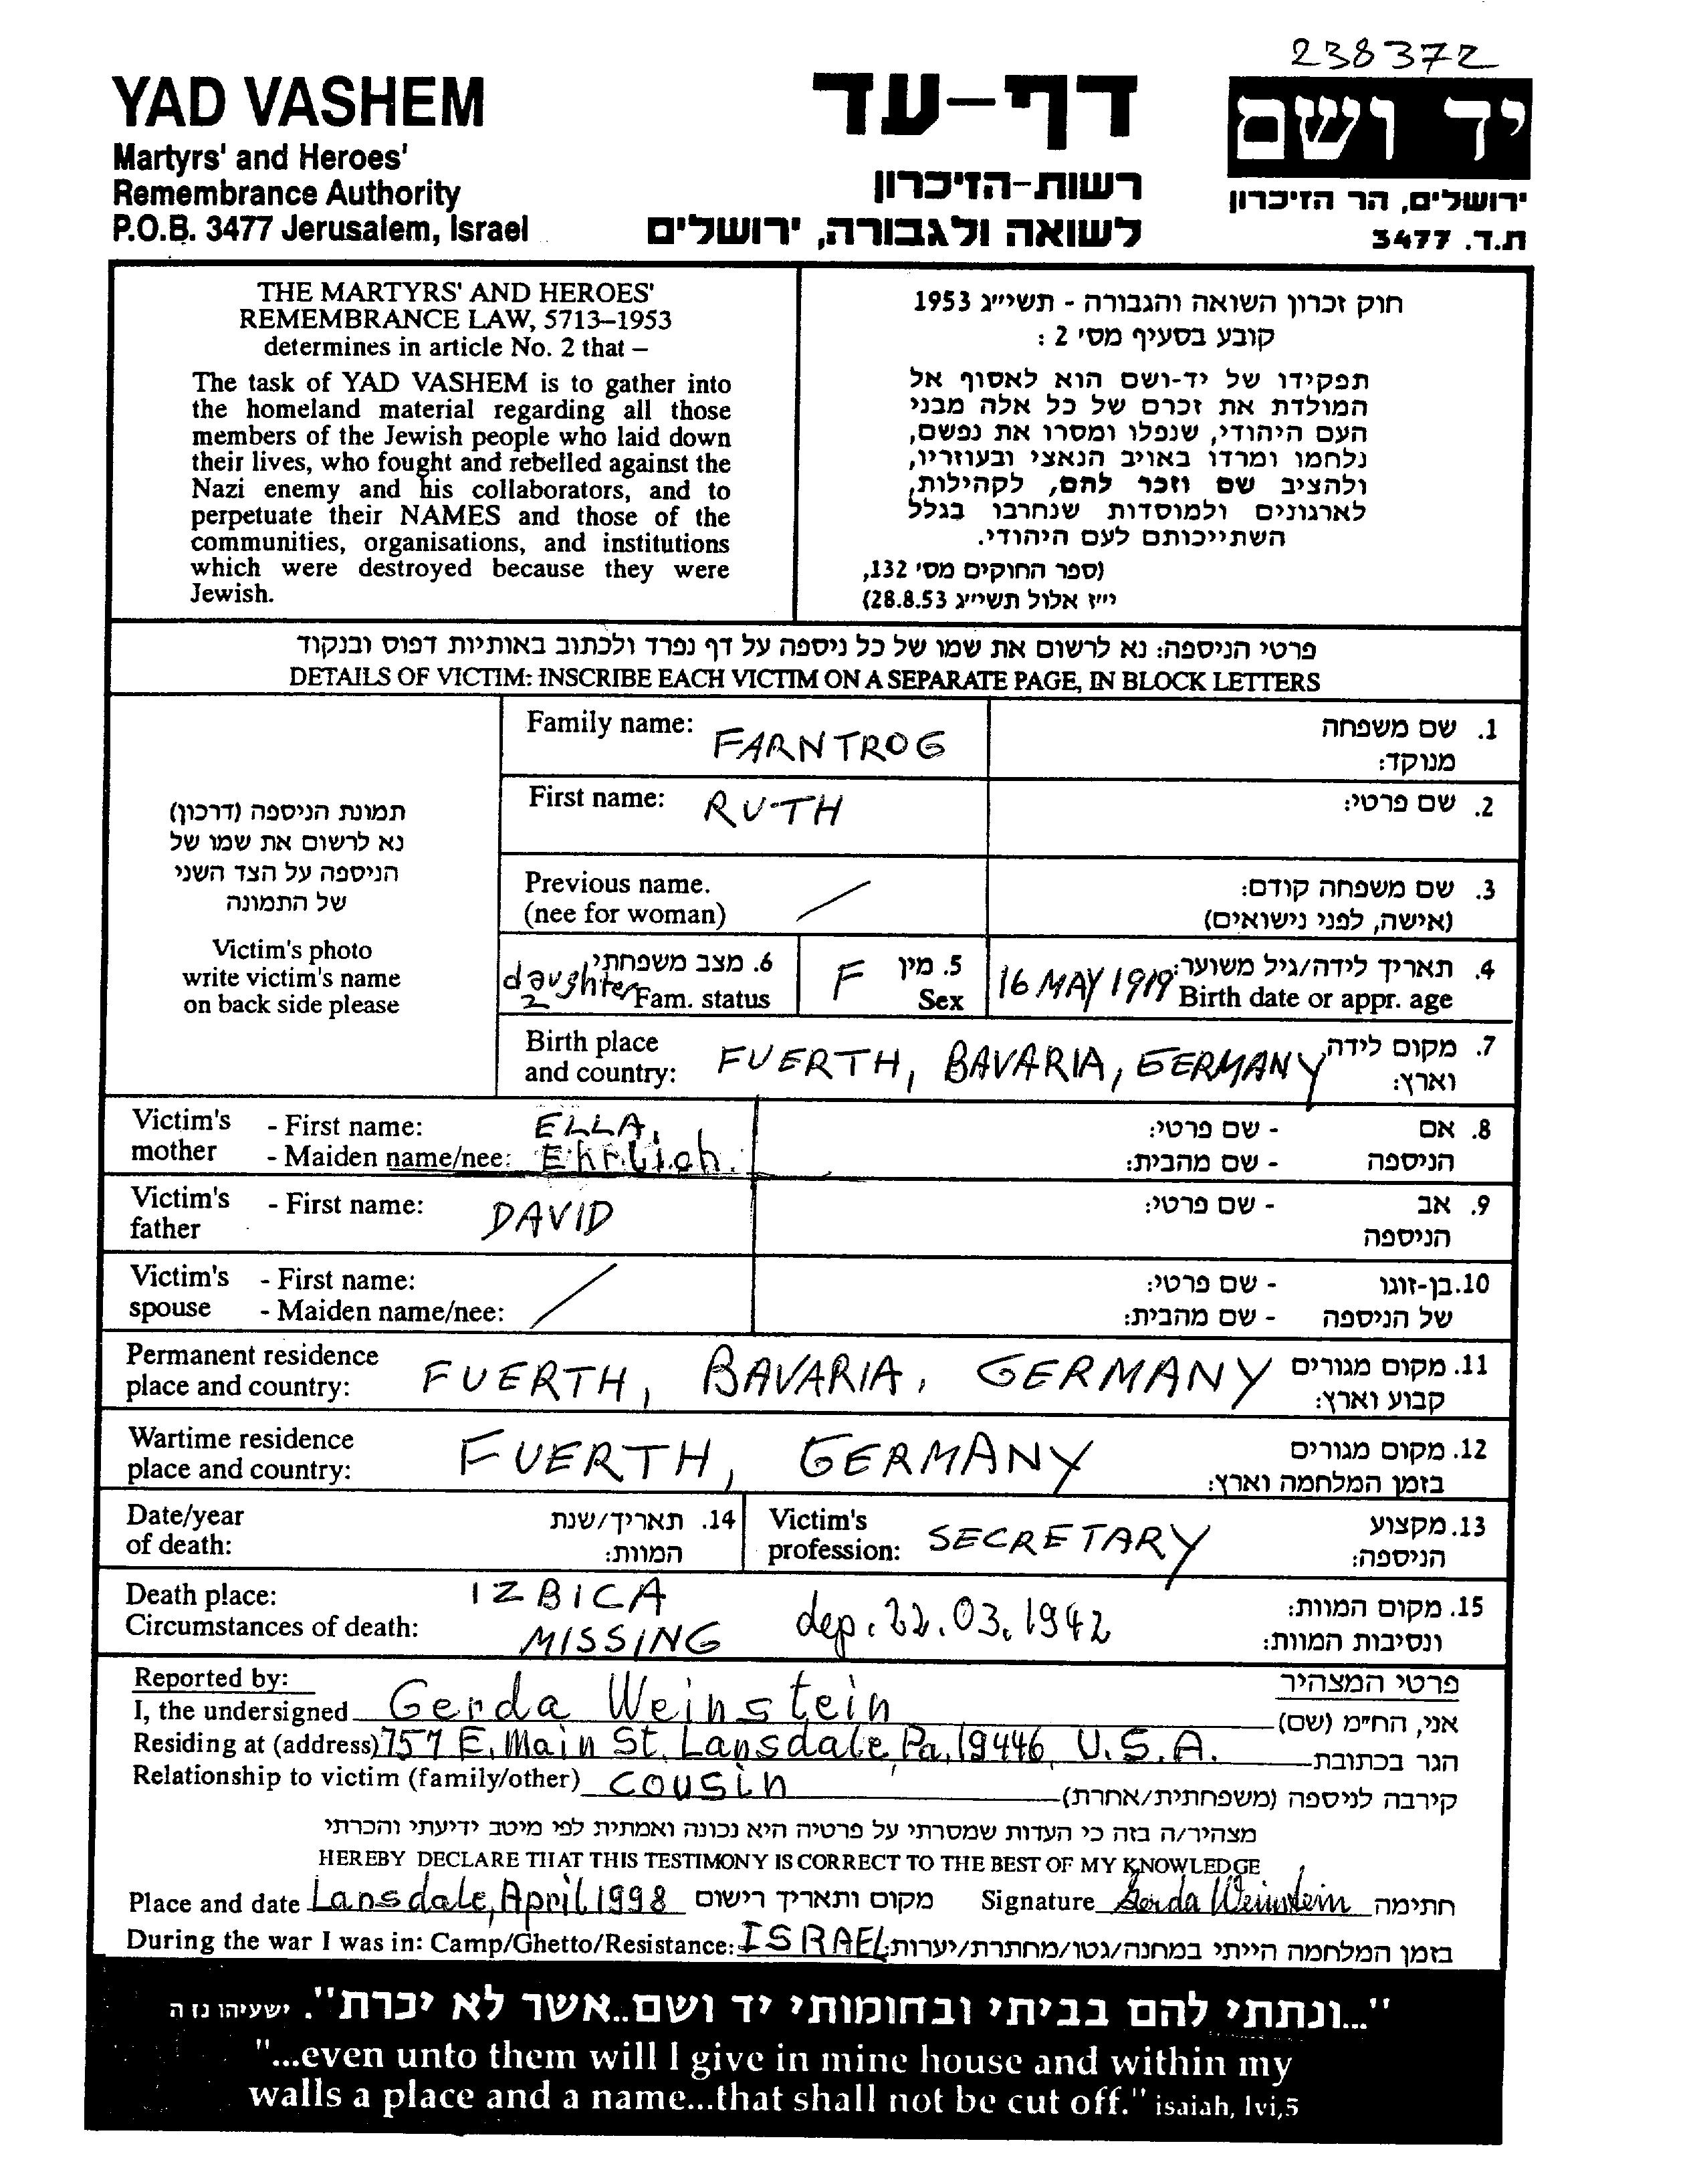 238372
YAD VASHEM
Martyrs' and Heroes'
Remembrance Authority
P.O.B. 3477 Jerusalem, Israel
דף-עד
רשות-הזיכרון
לשואה ולגבורה, ירושלים
יד ושם
ירושלים, הר הזיכרון
ת.ד. 3477
THE MARTYRS' AND HEROES'
REMEMBRANCE LAW, 5713–1953
determines in article No. 2 that –
The task of YAD VASHEM is to gather into
the homeland material regarding all those
members of the Jewish people who laid down
their lives, who fought and rebelled against the
Nazi enemy and his collaborators, and to
perpetuate their NAMES and those of the
communities, organisations, and institutions
which were destroyed because they were
Jewish.
חוק זכרון השואה והגבורה - תשי״ג 1953
קובע בסעיף מס' 2 :
תפקידו של יד-ושם הוא לאסוף אל
המולדת את זכרם של כל אלה מבני
העם היהודי, שנפלו ומסרו את נפשם,
נלחמו ומרדו באויב הנאצי ובעוזריו,
ולהציב שם וזכר להם, לקהילות,
לארגונים ולמוסדות שנחרבו בגלל
השתייכותם לעם היהודי.
(ספר החוקים מס' 132,
י״ז אלול תשי״ג 28.8.53)
פרטי הניספה: נא לרשום את שמו של כל ניספה על דף נפרד ולכתוב באותיות דפוס ובנקוד
DETAILS OF VICTIM: INSCRIBE EACH VICTIM ON A SEPARATE PAGE, IN BLOCK LETTERS
תמונת הניספה (דרכון)
נא לרשום את שמו של
הניספה על הצד השני
של התמונה
Victim's photo
write victim's name
on back side please
Family name: FARNTROG 1. שם משפחה
מנוקד:
First name: RUTH 2. שם פרטי:
Previous name. / 3. שם משפחה קודם:
(nee for woman) (אישה, לפני נישואים)
daughter 6. מצב משפחתי F 5. מין 16 MAY 1919 4. תאריך לידה/גיל משוער:
2 Fam. status Sex Birth date or appr. age
Birth place FUERTH, BAVARIA, GERMANY 7. מקום לידה
and country: וארץ:
Victim's - First name: ELLA, 8. אם - שם פרטי:
mother - Maiden name/nee: Ehrlich. הניספה - שם מהבית:
Victim's - First name: DAVID 9. אב - שם פרטי:
father הניספה
Victim's - First name: / 10. בן-זוגו - שם פרטי:
spouse - Maiden name/nee: של הניספה - שם מהבית:
Permanent residence FUERTH, BAVARIA, GERMANY 11. מקום מגורים
place and country: קבוע וארץ:
Wartime residence FUERTH, GERMANY 12. מקום מגורים
place and country: בזמן המלחמה וארץ:
Date/year 14. תאריך/שנת Victim's SECRETARY 13. מקצוע
of death: המוות: profession: הניספה:
Death place: IZBICA dep. 22.03.1942 15. מקום המוות:
Circumstances of death: MISSING ונסיבות המוות:
Reported by: פרטי המצהיר
I, the undersigned Gerda Weinstein אני, הח״מ (שם)
Residing at (address) 757 E. Main St. Lansdale, Pa, 19446, U.S.A. הגר בכתובת
Relationship to victim (family/other) cousin קירבה לניספה (משפחתית/אחרת)
מצהיר/ה בזה כי העדות שמסרתי על פרטיה היא נכונה ואמתית לפי מיטב ידיעתי והכרתי
HEREBY DECLARE THAT THIS TESTIMONY IS CORRECT TO THE BEST OF MY KNOWLEDGE
Place and date Lansdale, April 1998 מקום ותאריך רישום Signature Gerda Weinstein חתימה
During the war I was in: Camp/Ghetto/Resistance: ISRAEL בזמן המלחמה הייתי במחנה/גטו/מחתרת/יערות:
"...ונתתי להם בביתי ובחומותי יד ושם..אשר לא יכרת". ישעיהו נז ה
"...even unto them will I give in mine house and within my
walls a place and a name...that shall not be cut off." isaiah, lvi,5